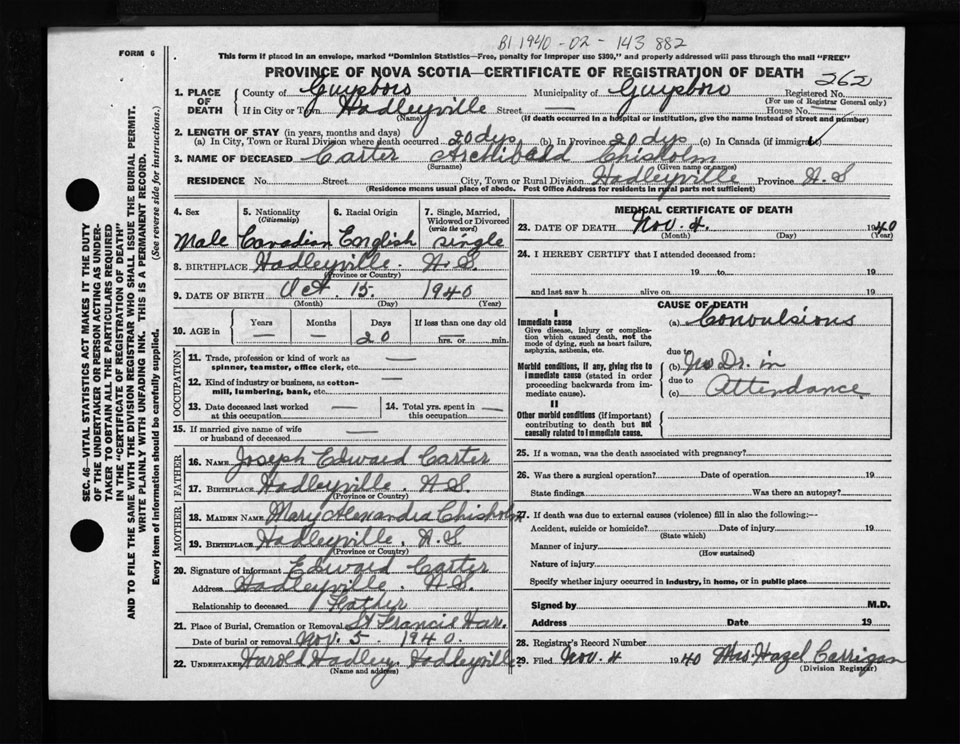 BI 1940-02-143882
FORM 6
This form if placed in an envelope, marked "Dominion Statistics—Free, penalty for improper use $300," and properly addressed will pass through the mail "FREE"
PROVINCE OF NOVA SCOTIA—CERTIFICATE OF REGISTRATION OF DEATH
262
1. PLACE OF DEATH County of Guysboro Municipality of Guysboro Registered No.
(For use of Registrar General only)
If in City or Town Hadleyville Street — House No. —
(Name) (If death occurred in a hospital or institution, give the name instead of street and number)
2. LENGTH OF STAY (in years, months and days)
(a) In City, Town or Rural Division where death occurred 20 dys (b) In Province 20 dys (c) In Canada (if immigrant)
3. NAME OF DECEASED Carter Archibald Chisholm
(Surname) (Given name or names)
RESIDENCE No. Street City, Town or Rural Division Hadleyville Province N.S
(Residence means usual place of abode. Post Office Address for residents in rural parts not sufficient)
SEC. 46—VITAL STATISTICS ACT MAKES IT THE DUTY
OF THE UNDERTAKER OR PERSON ACTING AS UNDER-
TAKER TO OBTAIN ALL THE PARTICULARS REQUIRED
IN THE "CERTIFICATE OF REGISTRATION OF DEATH"
AND TO FILE THE SAME WITH THE DIVISION REGISTRAR WHO SHALL ISSUE THE BURIAL PERMIT.
WRITE PLAINLY WITH UNFADING INK. THIS IS A PERMANENT RECORD.
Every item of information should be carefully supplied. (See reverse side for instructions.)
4. Sex 5. Nationality (Citizenship) 6. Racial Origin 7. Single, Married, Widowed or Divorced (write the word)
Male Canadian English single
8. BIRTHPLACE Hadleyville. N.S.
(Province or Country)
9. DATE OF BIRTH Oct. 15. 1940
(Month) (Day) (Year)
10. AGE in Years — Months — Days 20 If less than one day old hrs. or min.
OCCUPATION
11. Trade, profession or kind of work as spinner, teamster, office clerk, etc. —
12. Kind of industry or business, as cotton-mill, lumbering, bank, etc. —
13. Date deceased last worked at this occupation — 14. Total yrs. spent in this occupation —
15. If married give name of wife or husband of deceased —
FATHER
16. NAME Joseph Edward Carter
17. BIRTHPLACE Hadleyville. N.S.
(Province or Country)
MOTHER
18. MAIDEN NAME Mary Alexandra Chisholm
19. BIRTHPLACE Hadleyville. N.S
(Province or Country)
20. Signature of informant Edward Carter
Address Hadleyville. N.S.
Relationship to deceased Father
21. Place of Burial, Cremation or Removal St Francis Har.
Date of burial or removal Nov. 5. 1940.
22. UNDERTAKER Harold Hadley. Hadleyville.
(Name and address)
MEDICAL CERTIFICATE OF DEATH
23. DATE OF DEATH Nov. 4. 1940
(Month) (Day) (Year)
24. I HEREBY CERTIFY that I attended deceased from:
19 to 19
and last saw h alive on 19
CAUSE OF DEATH
I
Immediate cause (a) Convulsions
Give disease, injury or complica-
tion which caused death, not the
mode of dying, such as heart failure,
asphyxia, asthenia, etc.
due to
Morbid conditions, if any, giving rise to (b) No Dr. in
immediate cause (stated in order due to
proceeding backwards from im- (c) Attendance.
mediate cause).
II
Other morbid conditions (if important)
contributing to death but not
causally related to immediate cause.
25. If a woman, was the death associated with pregnancy?
26. Was there a surgical operation? Date of operation 19
State findings Was there an autopsy?
27. If death was due to external causes (violence) fill in also the following:—
Accident, suicide or homicide? Date of injury 19
(State which)
Manner of injury
(How sustained)
Nature of injury
Specify whether injury occurred in industry, in home, or in public place
Signed by M.D.
Address Date 19
28. Registrar's Record Number
29. Filed Nov. 4 1940 Mrs. Hazel Carrigan
(Division Registrar)